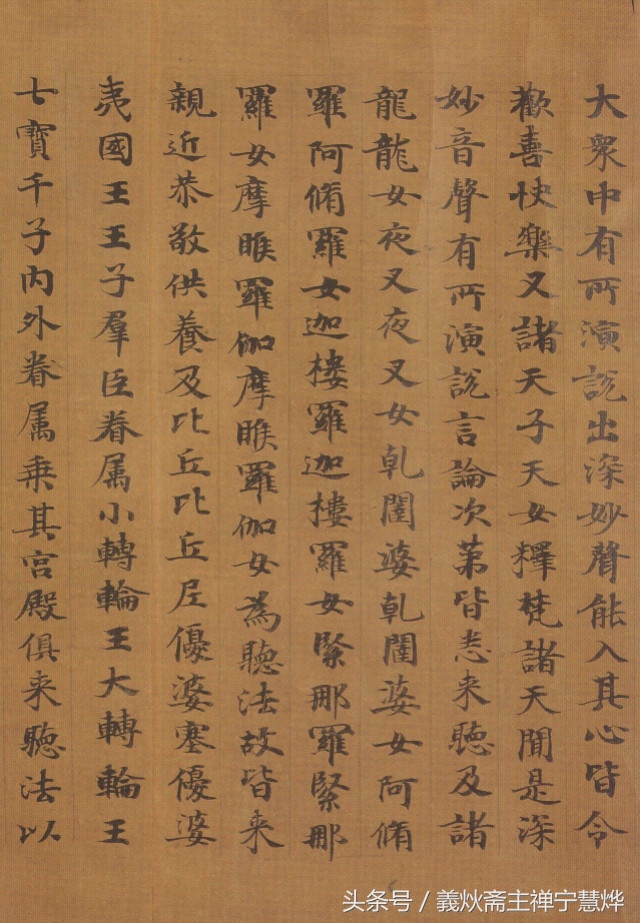 大衆中有所演說出深妙聲能入其心皆令
歡喜快樂又諸天子天女釋梵諸天聞是深
妙音聲有所演說言論次第皆悉来聽及諸
龍龍女夜叉夜叉女乹闥婆乹闥婆女阿脩
羅阿脩羅女迦樓羅迦樓羅女緊那羅緊那
羅女摩睺羅伽摩睺羅伽女為聽法故皆来
親近恭敬供養及比丘比丘尼優婆塞優婆
夷國王王子羣臣眷属小轉輪王大轉輪王
七寶千子内外眷属乗其宫殿俱来聽法以
头条号 / 義炏斋主禅宁慧烨